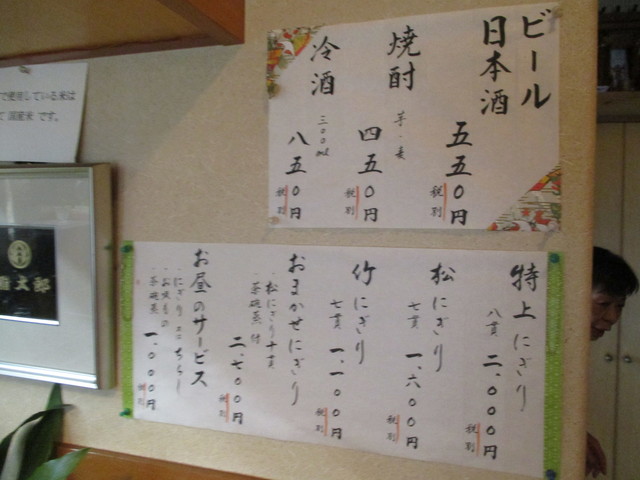 ビール
日本酒
五五〇円
税別
焼酎
芋・麦
四五〇円
税別
冷酒
三〇〇ml
八五〇円
税別
特上にぎり
八貫 二、〇〇〇円
税別
松にぎり
七貫 一、六〇〇円
税別
竹にぎり
七貫 一、一〇〇円
税別
おまかせにぎり
・松にぎり十貫
・茶碗蒸 付
二、七〇〇円
税別
お昼のサービス
・にぎり or ちらし
・お吸もの
・茶碗蒸
一、〇〇〇円
税別
で使用している米は
て 国産米 です。
太郎